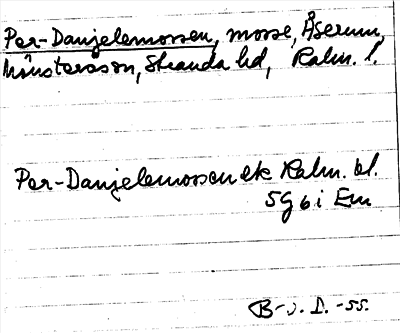 Per-Danjelemossen, mosse, Åserum,
Mönsteråsn, Stranda hd, Kalm. l.
Per-Danjelemossen ek Kalm. bl.
5g 6i Em
B-n. D. -55.